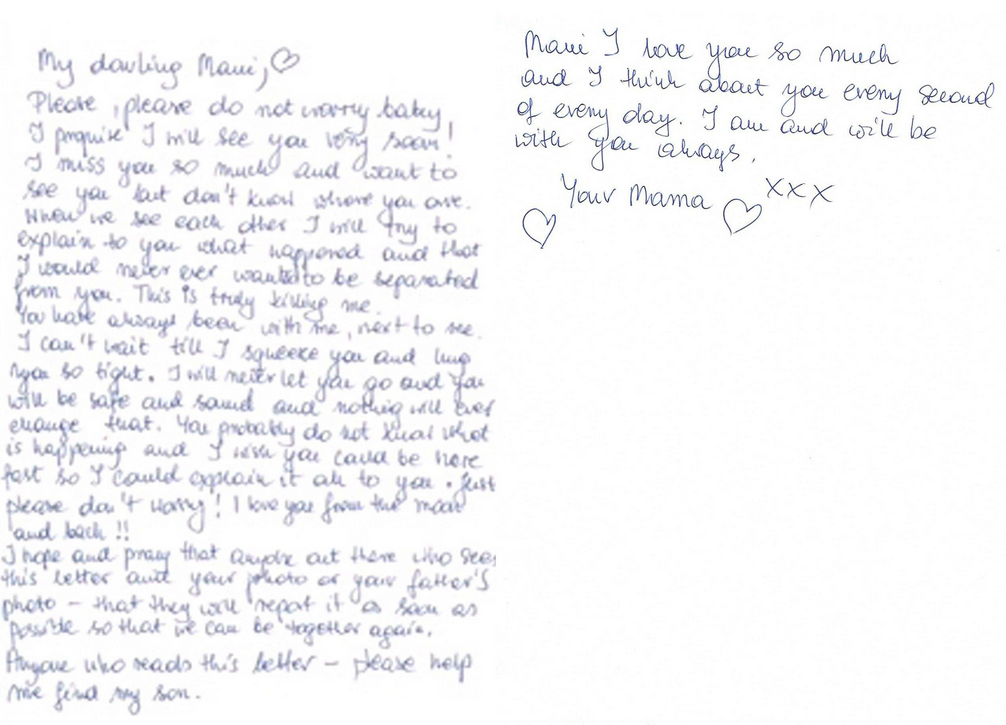 My darling Maui, ♡
Please, please do not worry baby,
I promise I will see you very soon!
I miss you so much and want to
see you but don't know where you are.
When we see each other I will try to
explain to you what happened and that
I would never ever wanted to be separated
from you. This is truly killing me.
You have always been with me, next to me.
I can't wait 'till I squeeze you and hug
you so tight. I will never let you go and you
will be safe and sound and nothing will ever
change that. You probably do not know what
is happening and I wish you could be here
fast so I could explain it all to you. Just
please don't worry! I love you from the moon
and back!!
I hope and pray that anyone out there who sees
this letter and your photo or your father's
photo - that they will report it as soon as
possible so that we can be together again.
Anyone who reads this letter - please help
me find my son.
Maui I love you so much
and I think about you every second
of every day. I am and will be
with you always.
Your Mama ♡ xxx
♡